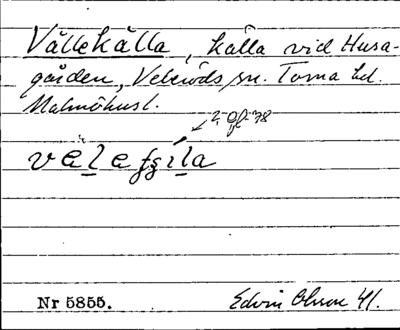 Vällekälla, källa vid Husa-
gården, Veberöds sn. Torna hd.
Malmöhus l.
Nr 5855. Edvin Olsson 41.